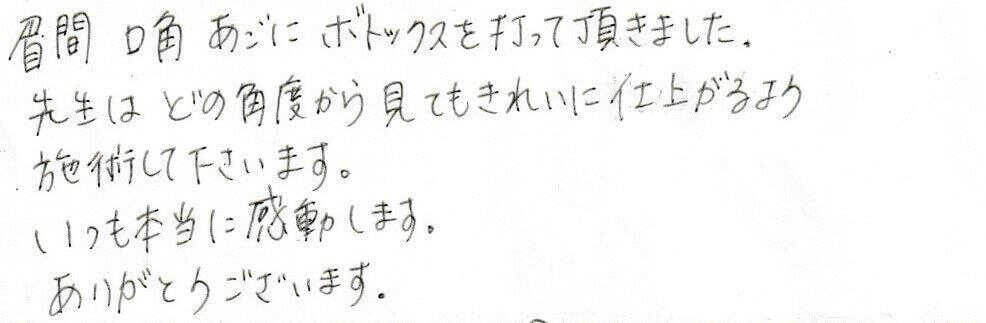 眉間 口角 あごに ボトックスを打って頂きました.
先生は どの角度から見てもきれいに仕上がるよう
施術して下さいます。
いつも本当に感動します。
ありがとうございます.